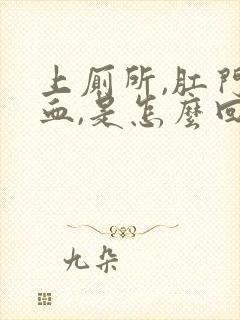 上厠所,肛門
血,是怎麼回
九朵